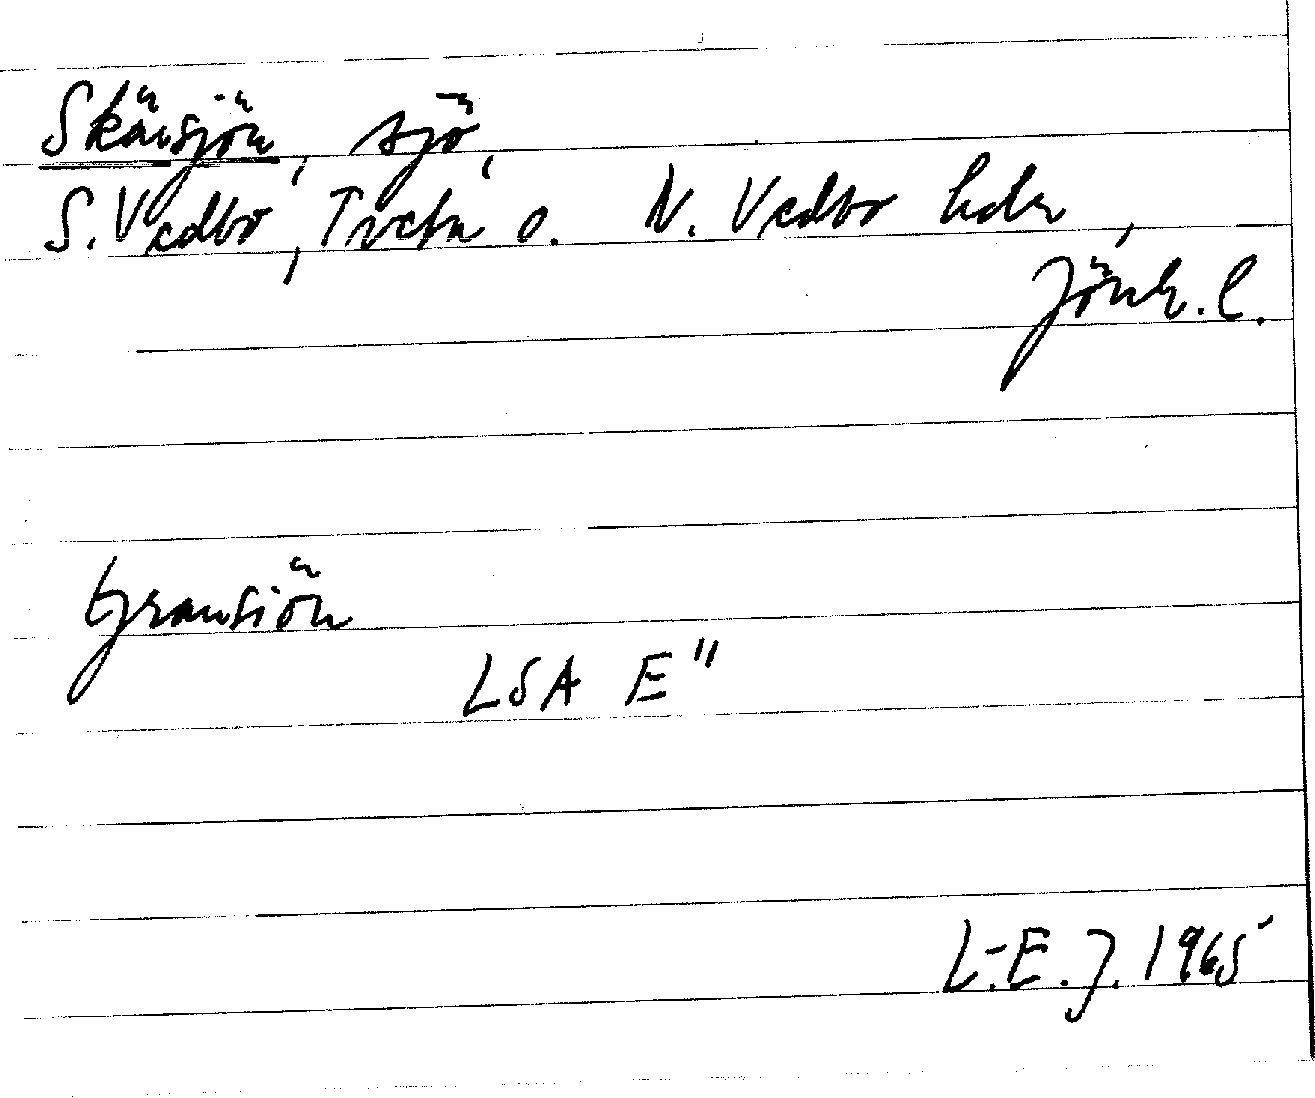 Skänsjön, sjö,
S. Vedbo, Tveta o. N. Vedbo hdr,
Jönk. l.
Gransiön
LSA E"
L.-E. J. 1965